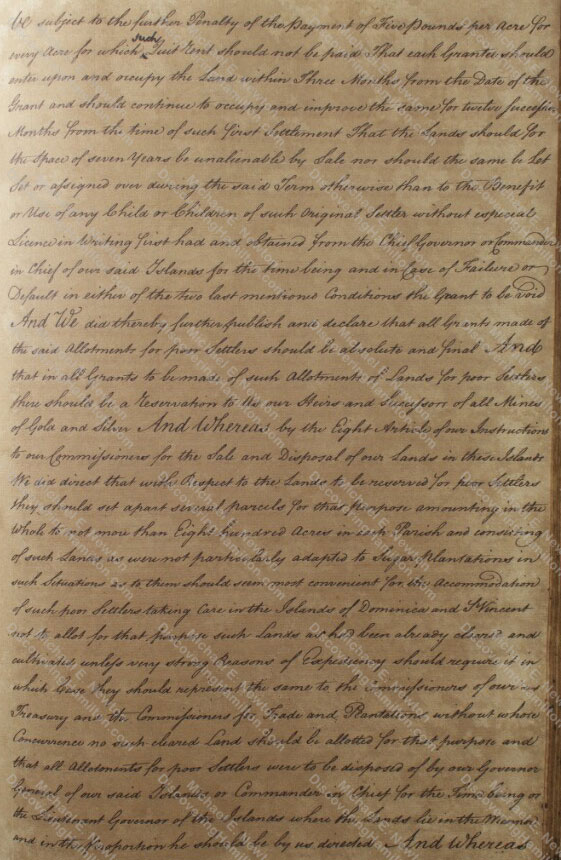 be subject to the further Penalty of the Payment of Five Pounds per Acre for
every Acre for which such Quit Rent should not be paid That each Grantee should
enter upon and occupy the Land within Three Months from the Date of the
Grant and should continue to occupy and improve the same for twelve successive
Months from the time of such first Settlement That the Lands should for
the Space of seven Years be unalienable by Sale nor should the same be Let
Set or assigned over during the said Term otherwise than to the Benefit
or Use of any Child or Children of such Original Settler without especial
Licence in Writing first had and obtained from the Chief Governor or Commander
in Chief of our said Islands for the time being and in Case of Failure or
Default in either of the two last mentioned Conditions the Grant to be void
And We did thereby further publish and declare that all Grants made of
the said Allotments for poor Settlers should be absolute and final And
that in all Grants to be made of such Allotments of Lands for poor Settlers
there should be a Reservation to Us our Heirs and Successors of all Mines
of Gold and Silver And Whereas by the Eight Article of our Instructions
to our Commissioners for the Sale and Disposal of our Lands in these Islands
We did direct that with Respect to the Lands to be reserved for poor Settlers
they should set apart several parcels for that purpose amounting in the
whole to not more than Eight hundred Acres in each Parish and consisting
of such Lands as were not particularly adapted to Sugar Plantations in
such Situations as to them should seem most convenient for the Accommodation
of such poor Settlers taking Care in the Islands of Dominica and St Vincent
not to allot for that purpose such Lands as had been already cleared and
cultivated unless very strong Reasons of Expediency should require it in
which Case they should represent the same to the Commissioners of our
Treasury and the Commissioners for Trade and Plantations without whose
Concurrence no such cleared Land should be allotted for that purpose and
that all Allotments for poor Settlers were to be disposed of by our Governor
General of our said Islands or Commander in Chief for the Time being or
the Lieutenant Governor of the Islands where the Lands lie in the Manner
and in the Proportion he should be by us directed And Whereas